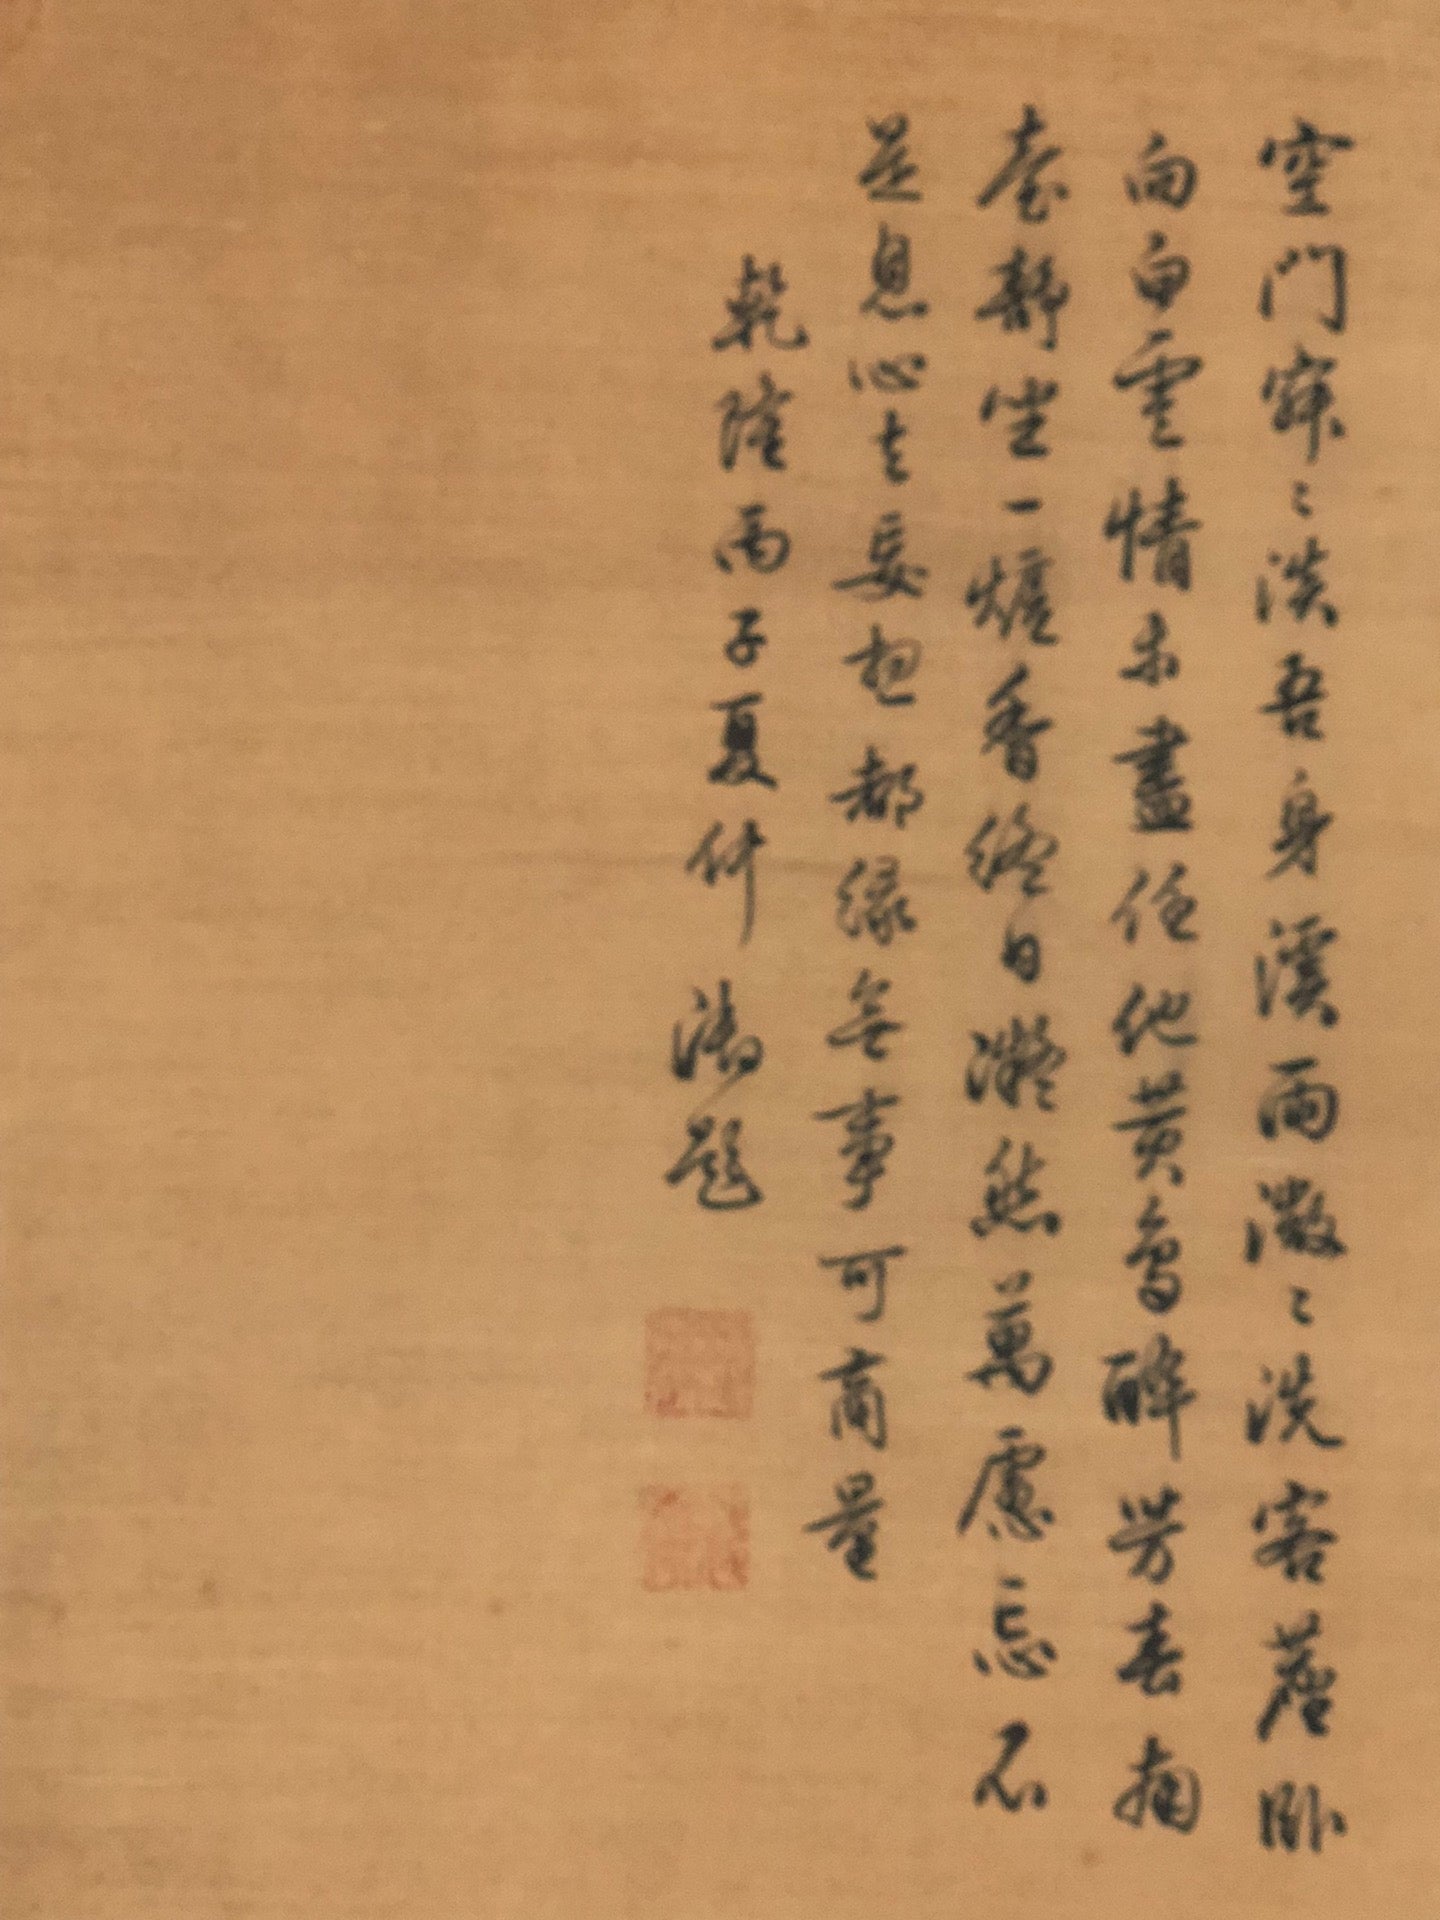 空門寂〻淡吾身溪雨微〻洗客塵臥
向白雲情未盡任他黃鳥醉芳春南
臺靜坐一爐香終日凝然萬慮忘不
是息心去妄想都緣無事可商量
乾隆丙子夏仲 濤題